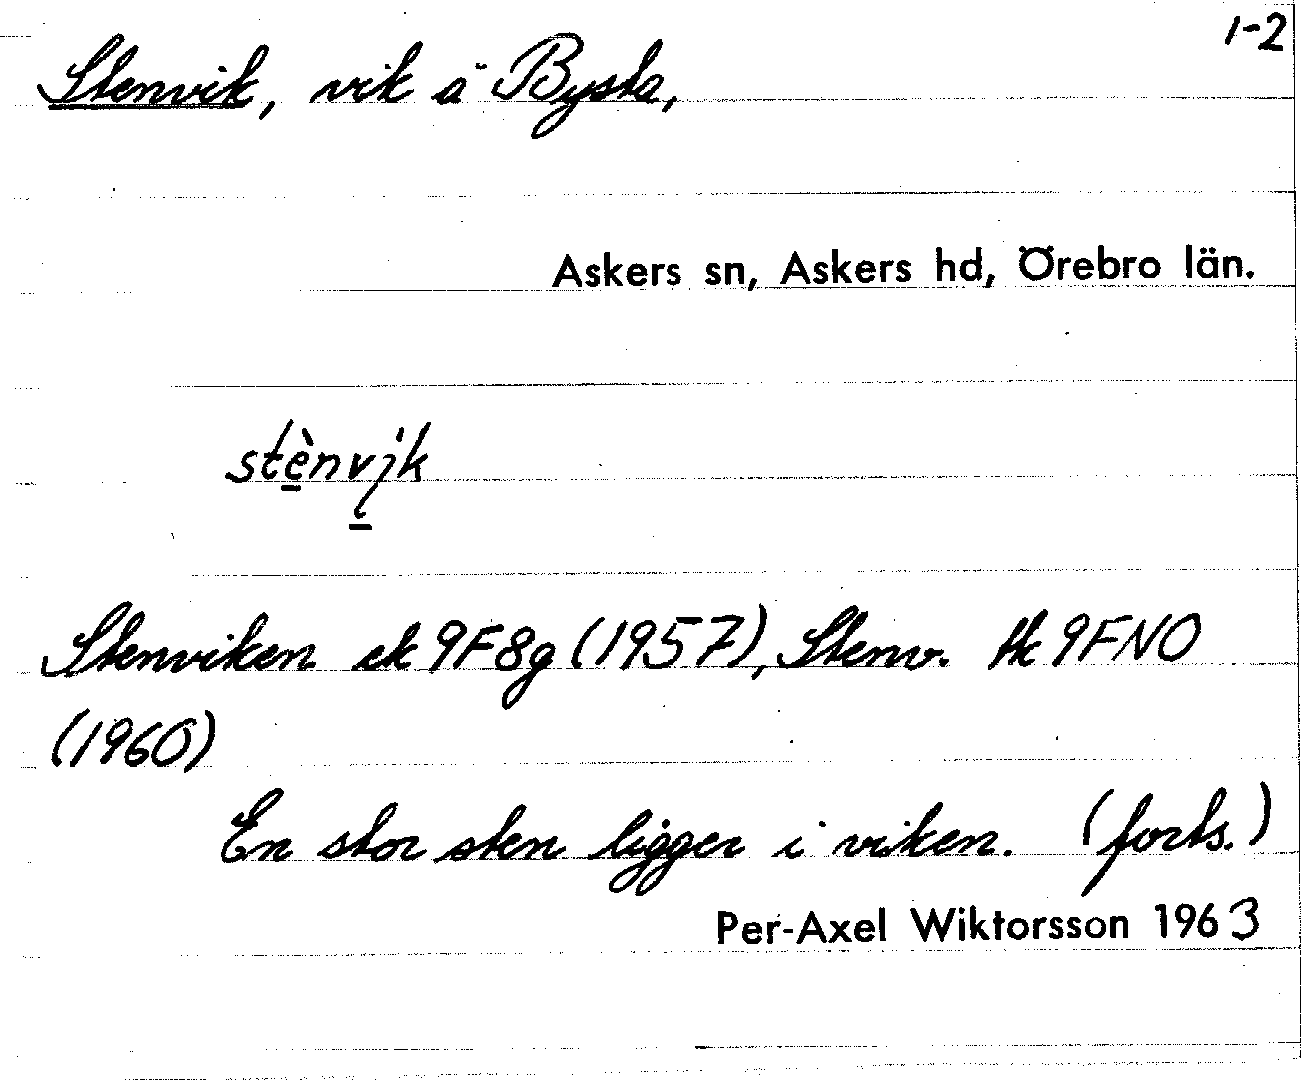 1-2
Stenvik, vik å Bysta,
Askers sn, Askers hd, Örebro län.
stènvik
Stenviken ek 9F8g (1957), Stenv. tk 9FNO
(1960)
En stor sten ligger i viken. (forts.)
Per-Axel Wiktorsson 1963